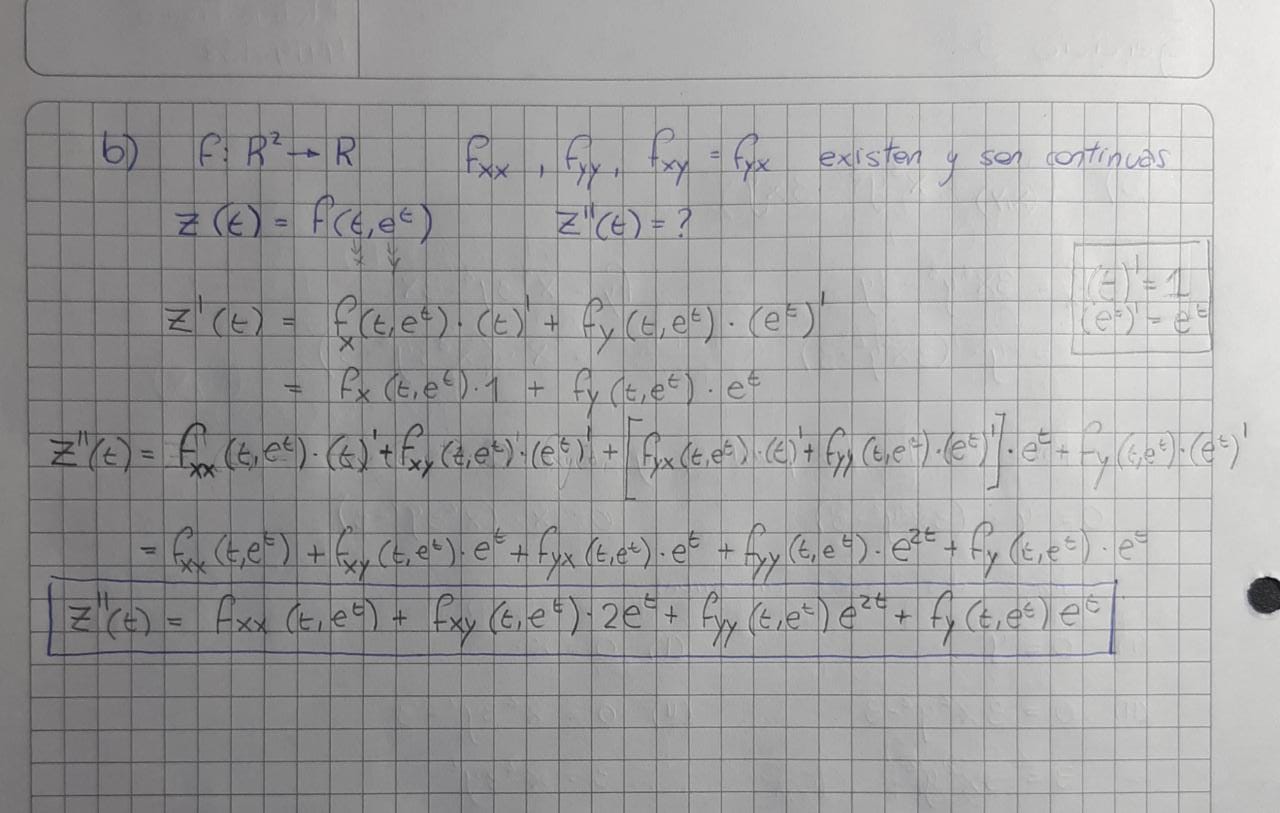 b) f: R² → R f_xx , f_yy, f_xy = f_yx existen y son continuas
z(t) = f(t,e^t) z''(t) = ?
(t)' = 1
(e^t)' = e^t
z'(t) = f_x(t,e^t)·(t)' + f_y(t,e^t)·(e^t)'
= f_x(t,e^t)·1 + f_y(t,e^t)·e^t
z''(t) = f_xx(t,e^t)·(t)' + f_xy(t,e^t)'·(e^t)' + [f_yx(t,e^t)·(t)' + f_yy(t,e^t)·(e^t)']·e^t + f_y(t,e^t)·(e^t)'
= f_xx(t,e^t) + f_xy(t,e^t)·e^t + f_yx(t,e^t)·e^t + f_yy(t,e^t)·e^2t + f_y(t,e^t)·e^t
z''(t) = f_xx(t,e^t) + f_xy(t,e^t)·2e^t + f_yy(t,e^t)e^2t + f_y(t,e^t)e^t